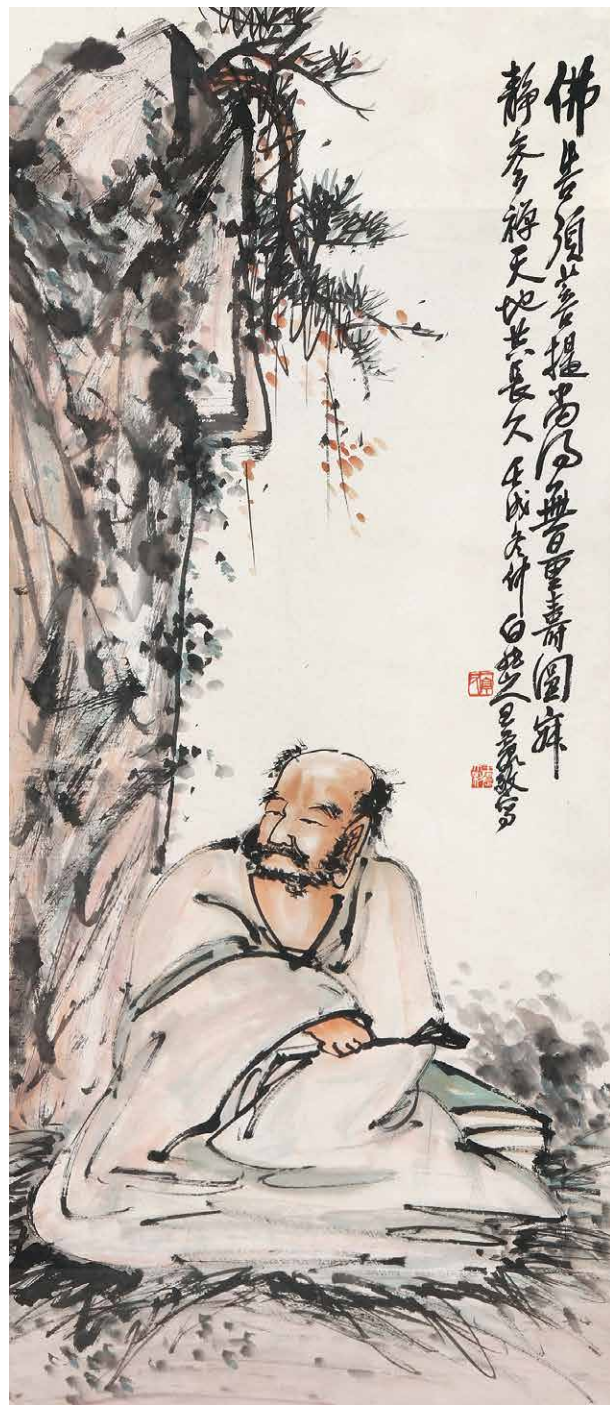 佛告須菩提當得無量壽圓寂
靜參禪天地共長久 壬戌冬仲白龍山人王震敬寫